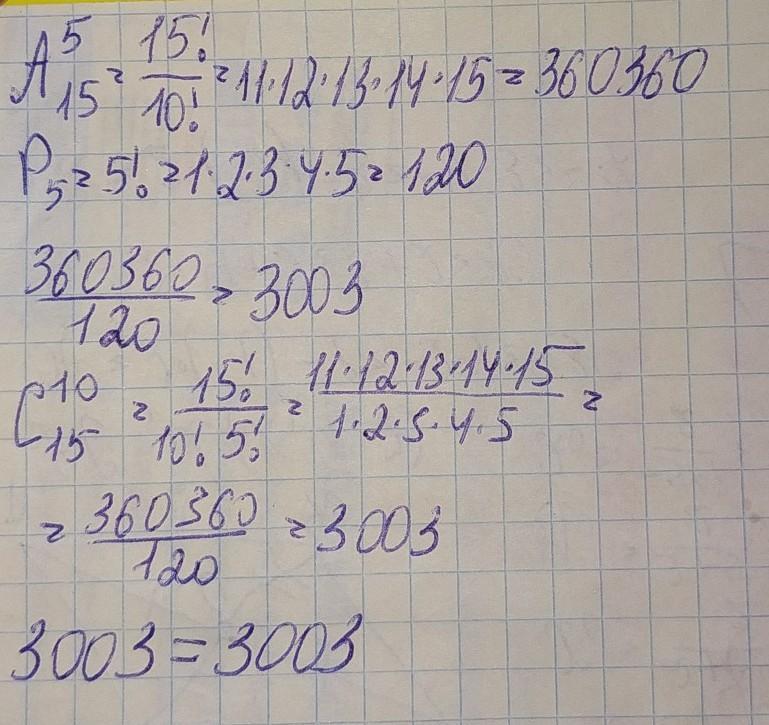 A₁₅⁵ = 15!/10! = 11·12·13·14·15 = 360360
P₅ = 5! = 1·2·3·4·5 = 120
360360/120 = 3003
C₁₅¹⁰ = 15!/10! 5! = 11·12·13·14·15/1·2·3·4·5 =
= 360360/120 = 3003
3003 = 3003